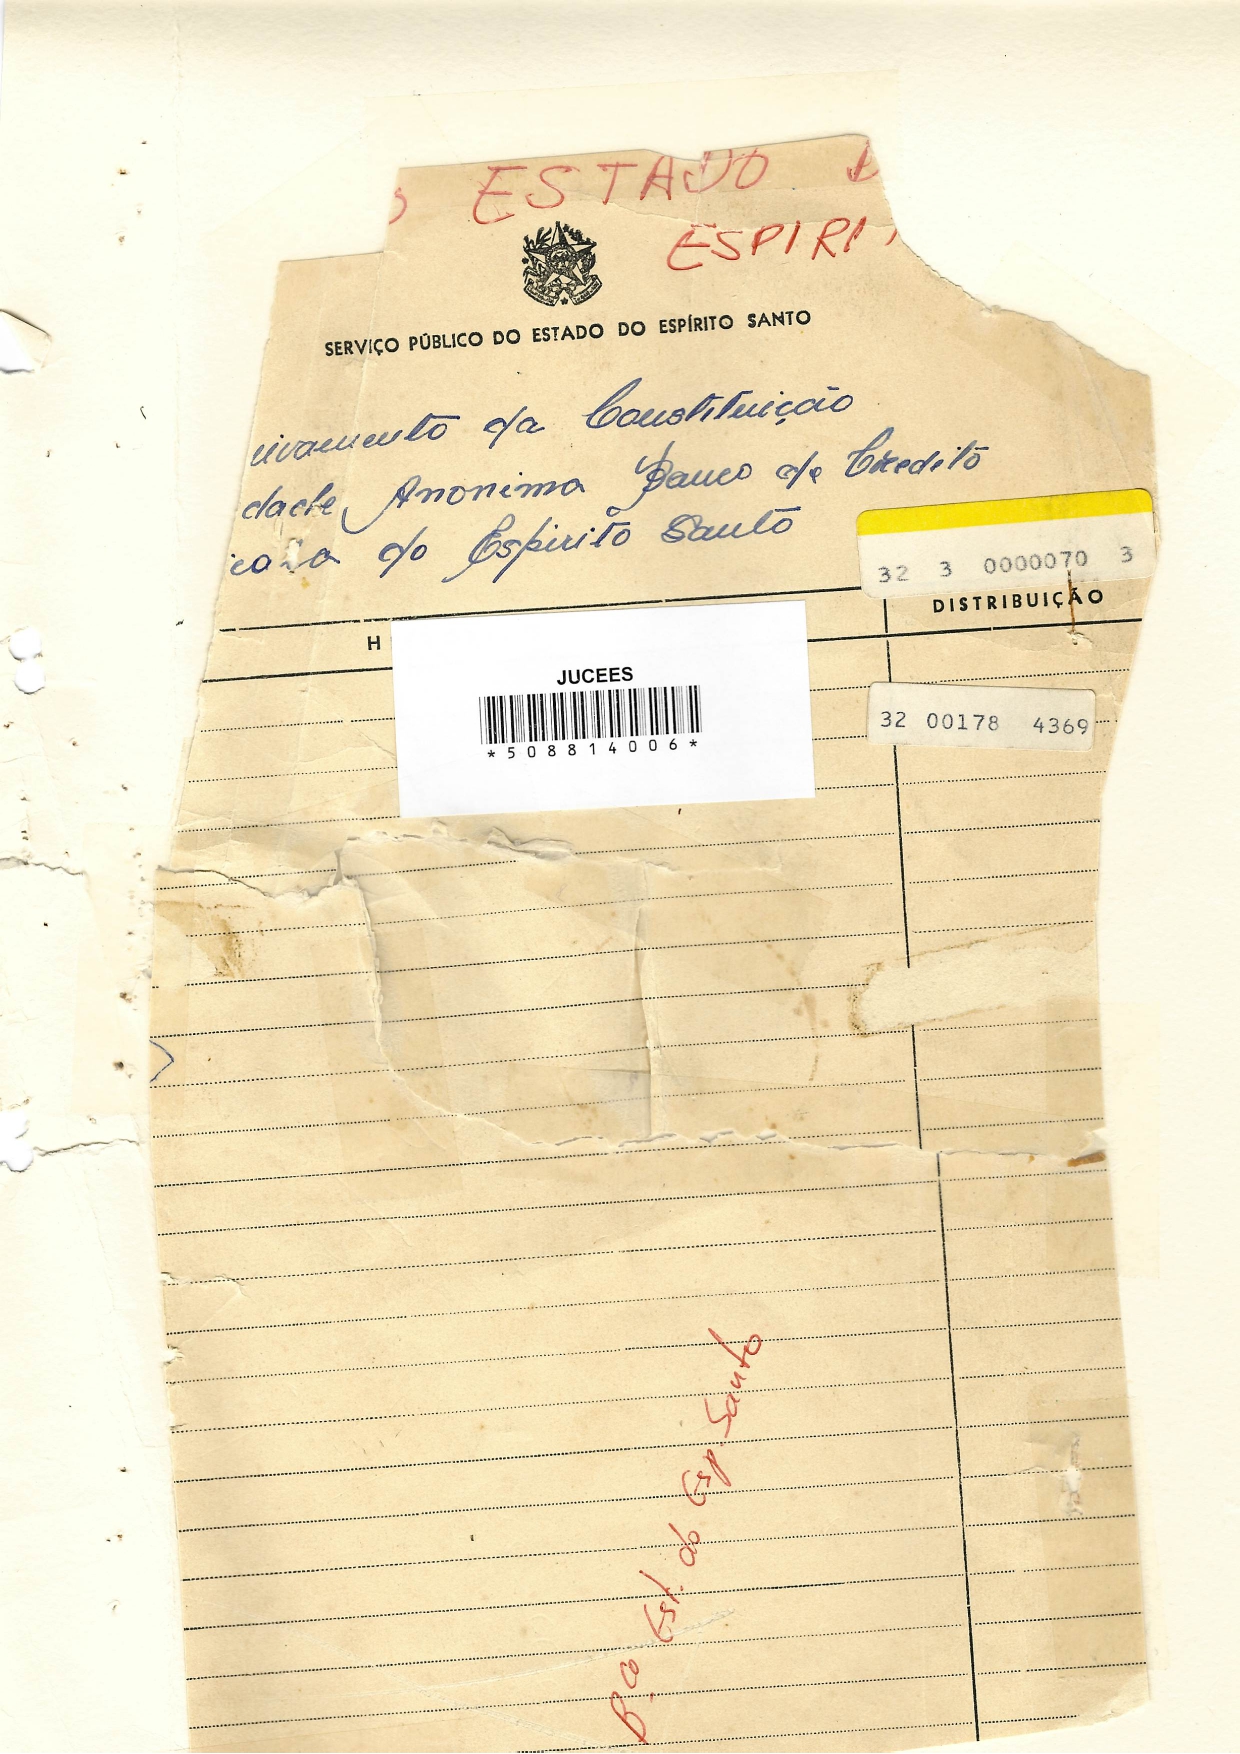 ESTADO D
ESPIRI
SERVIÇO PÚBLICO DO ESTADO DO ESPÍRITO SANTO
uivamento da Constituição
dade Anonima Banco de Credito
do Espirito Santo
32 3 0000070 3
DISTRIBUIÇÃO
H
JUCEES
*508814006*
32 00178 4369
B.co Est. do Esp. Santo